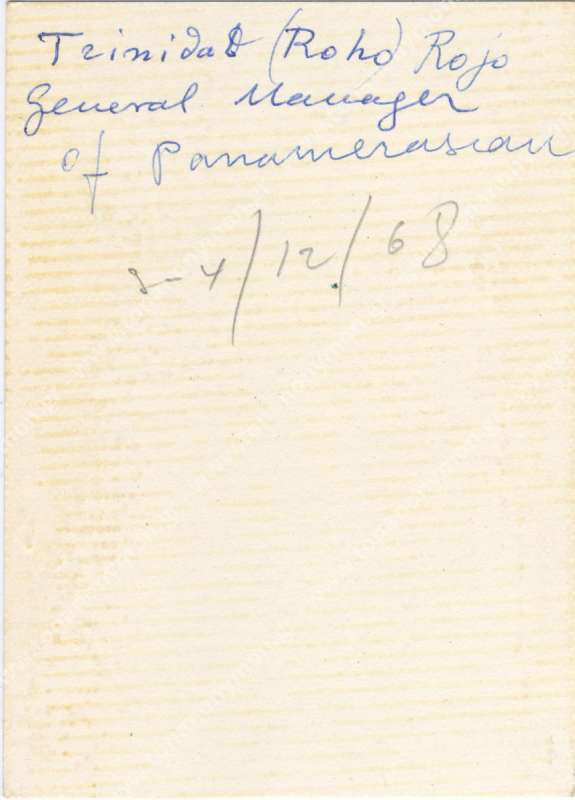 Trinidad (Roho) Rojo
General Manager
of Panamerasian
3-4/12/68